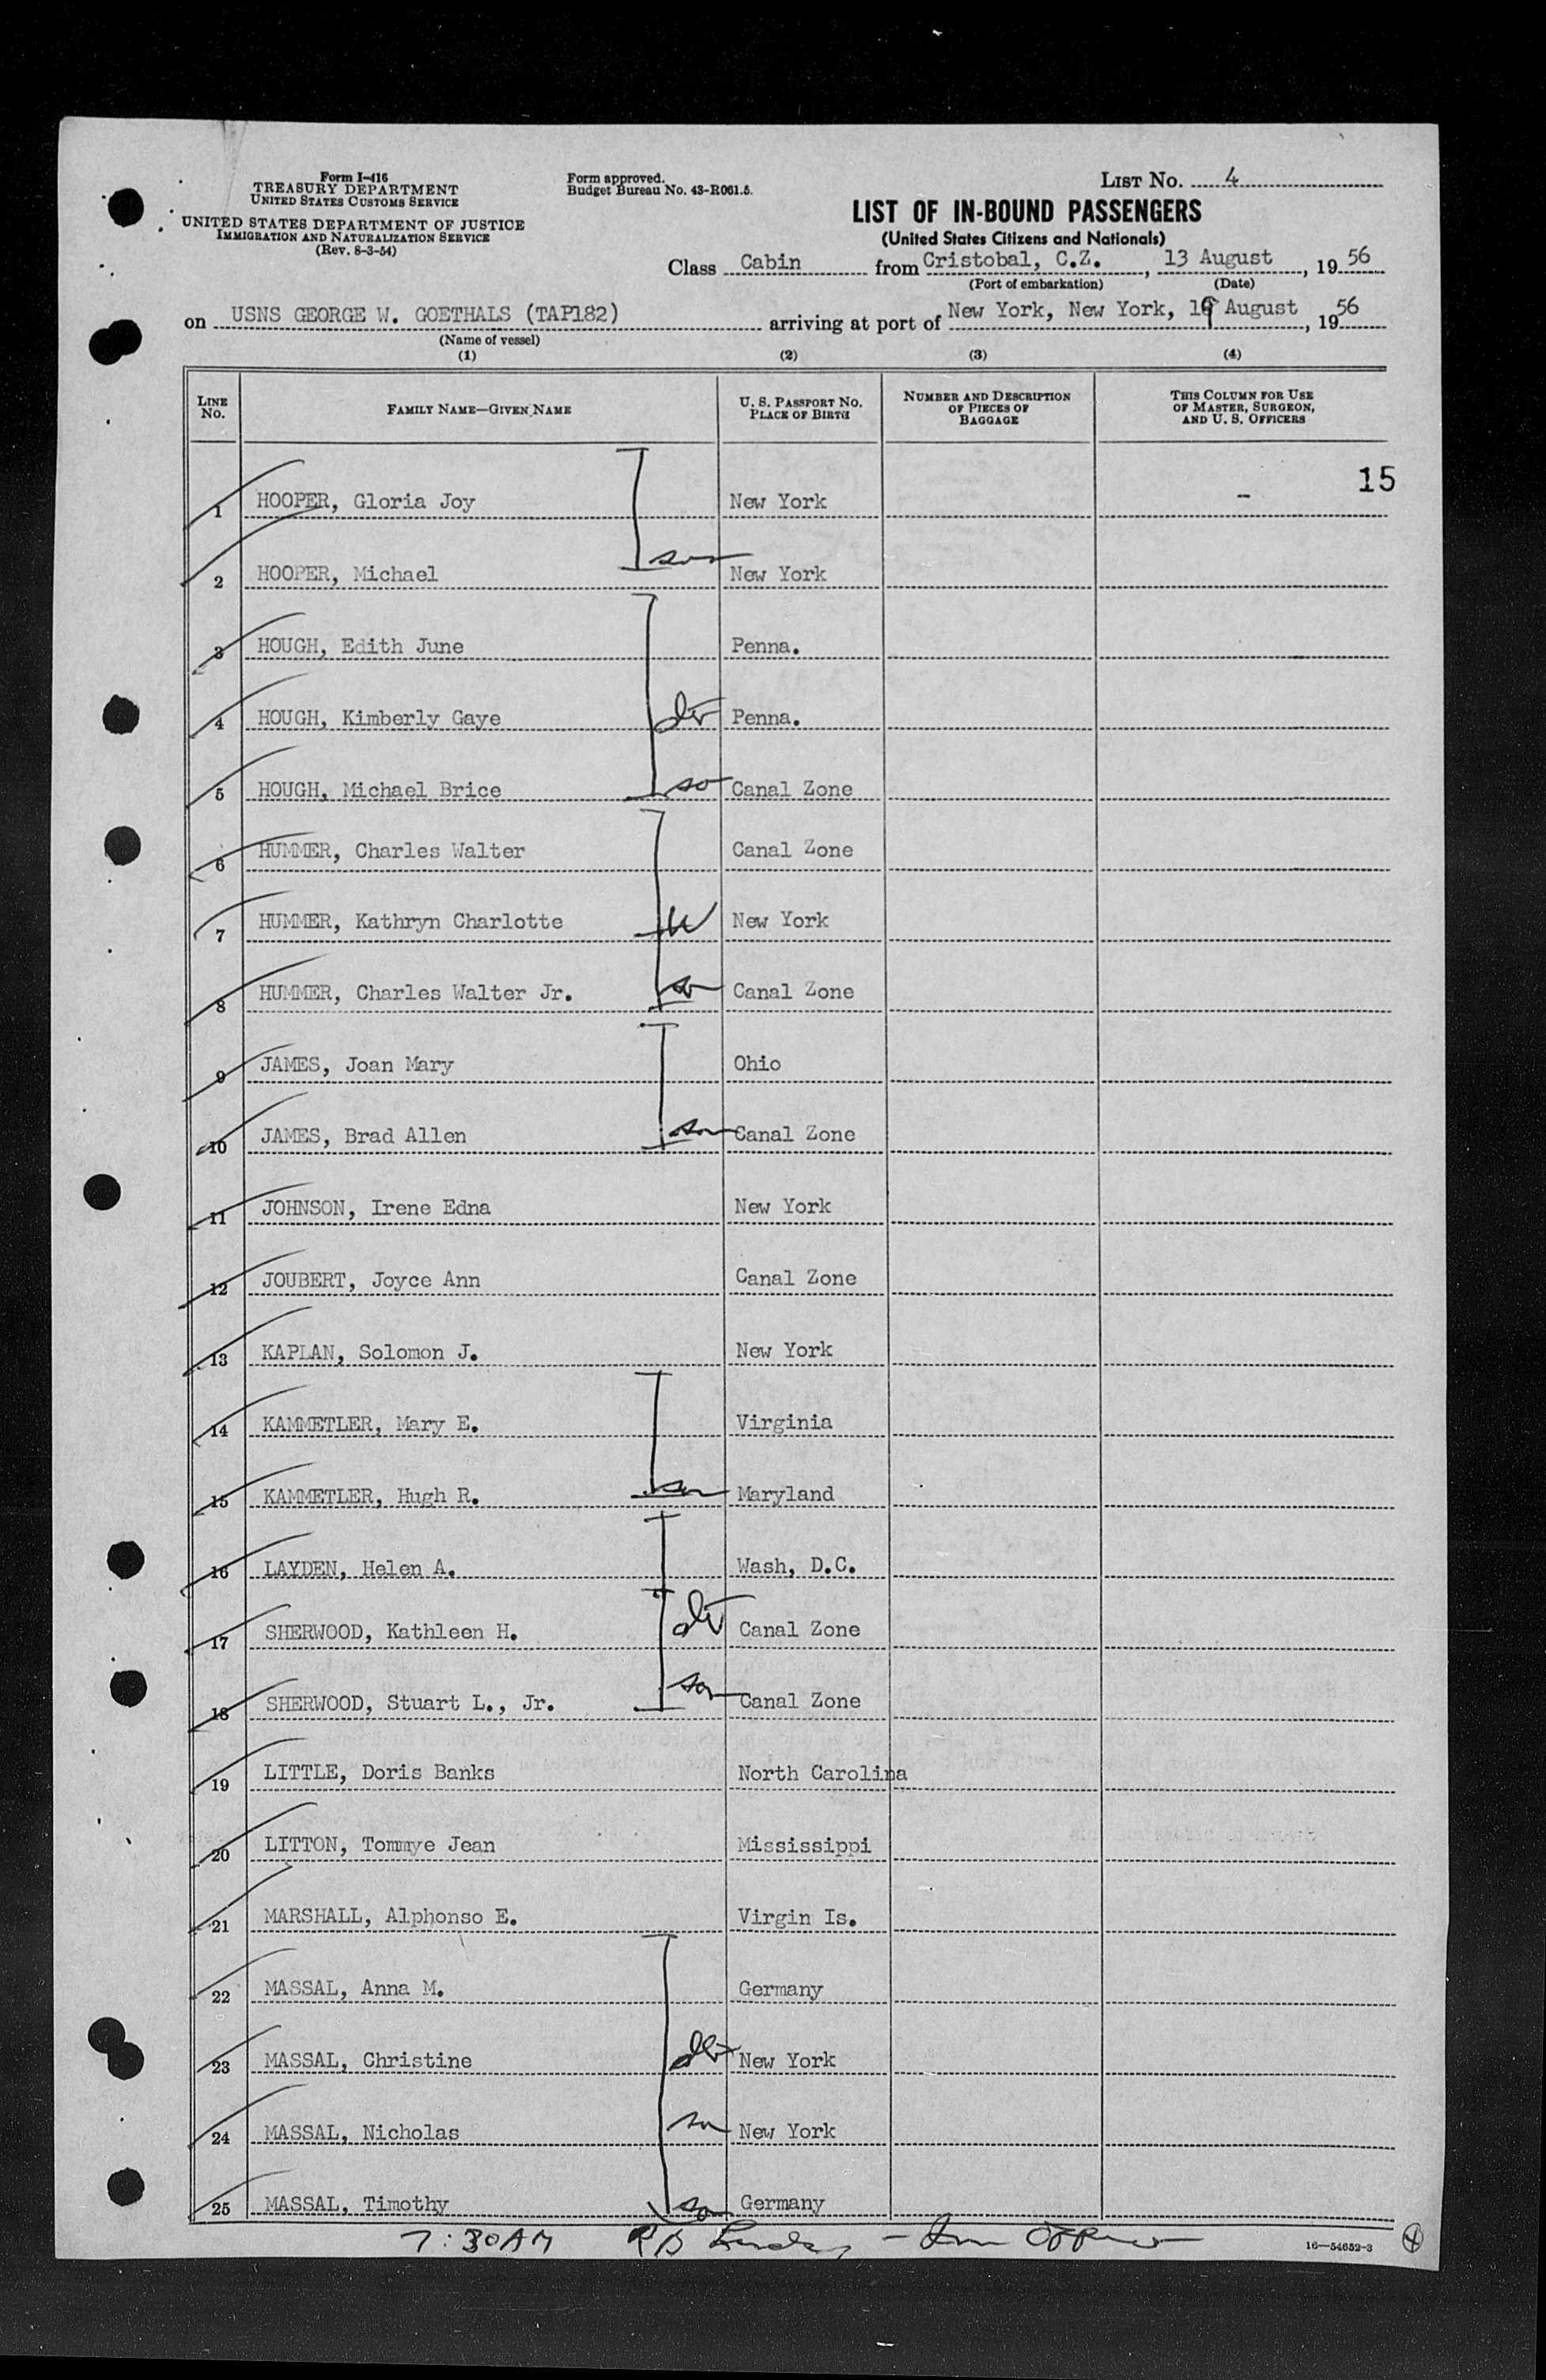 Form I-416
TREASURY DEPARTMENT
UNITED STATES CUSTOMS SERVICE
UNITED STATES DEPARTMENT OF JUSTICE
IMMIGRATION AND NATURALIZATION SERVICE
(Rev. 8-3-54)
Form approved.
Budget Bureau No. 43-R061.5.
LIST NO. 4
LIST OF IN-BOUND PASSENGERS
(United States Citizens and Nationals)
Class Cabin from Cristobal, C.Z., 13 August, 1956
(Port of embarkation) (Date)
on USNS GEORGE W. GOETHALS (TAP182) arriving at port of New York, New York, August, 1956
(Name of vessel)
(1) (2) (3) (4)
LINE NO. FAMILY NAME—GIVEN NAME U. S. PASSPORT NO. PLACE OF BIRTH NUMBER AND DESCRIPTION OF PIECES OF BAGGAGE THIS COLUMN FOR USE OF MASTER, SURGEON, AND U. S. OFFICERS
15
1 HOOPER, Gloria Joy New York -
2 HOOPER, Michael son New York
3 HOUGH, Edith June Penna.
4 HOUGH, Kimberly Gaye Penna.
5 HOUGH, Michael Brice so Canal Zone
6 HUMMER, Charles Walter Canal Zone
7 HUMMER, Kathryn Charlotte W New York
8 HUMMER, Charles Walter Jr. son Canal Zone
9 JAMES, Joan Mary Ohio
10 JAMES, Brad Allen son Canal Zone
11 JOHNSON, Irene Edna New York
12 JOUBERT, Joyce Ann Canal Zone
13 KAPLAN, Solomon J. New York
14 KAMMETLER, Mary E. Virginia
15 KAMMETLER, Hugh R. son Maryland
16 LAYDEN, Helen A. Wash, D.C.
17 SHERWOOD, Kathleen H. Canal Zone
18 SHERWOOD, Stuart L., Jr. son Canal Zone
19 LITTLE, Doris Banks North Carolina
20 LITTON, Tommye Jean Mississippi
21 MARSHALL, Alphonso E. Virgin Is.
22 MASSAL, Anna M. Germany
23 MASSAL, Christine New York
24 MASSAL, Nicholas son New York
25 MASSAL, Timothy son Germany
7:30AM
16—54652-3
4